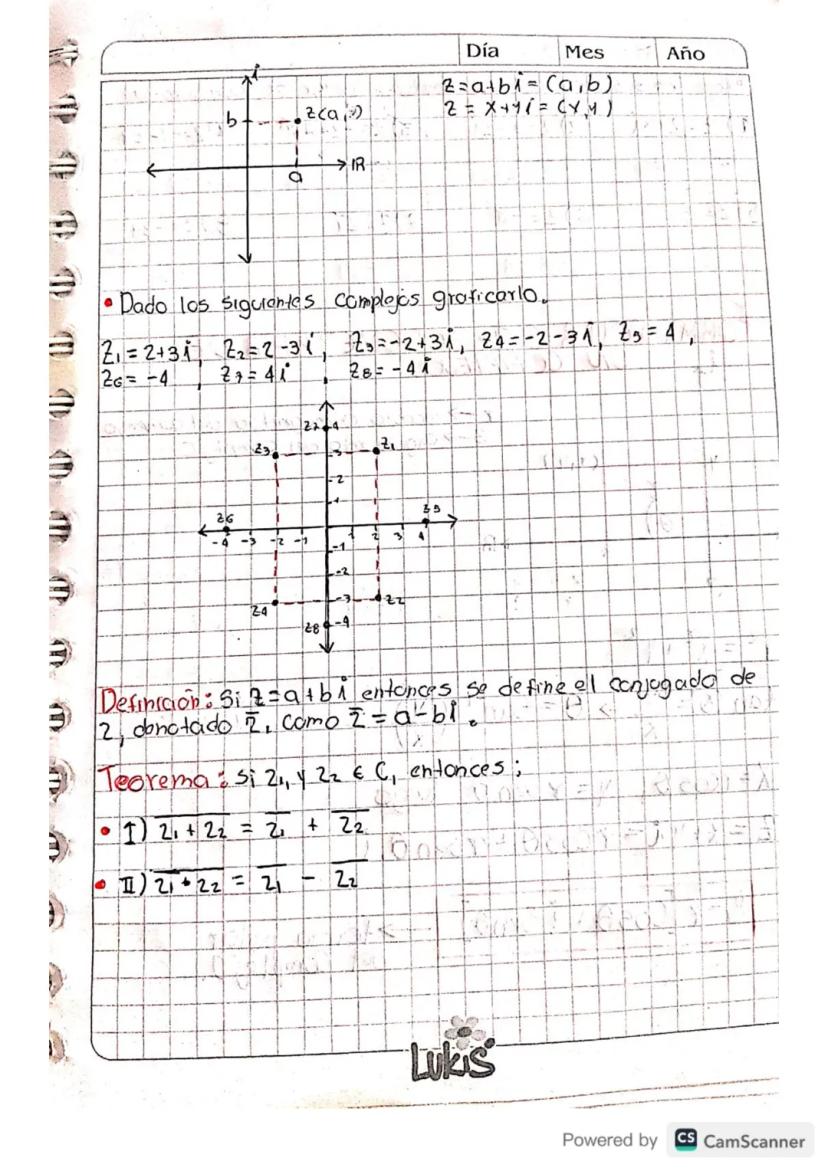 Día Mes Año
i
z=a+bi=(a,b)
z = x+yi=(x,y)
b
z(a,
IR
a
• Dado los siguientes complejos graficarlo.
Z1=2+3i, Z2=2-3i, Z3=-2+3i, Z4=-2-3i, Z5=4,
Z6=-4, Z7=4i, Z8=-4i
Z7 4
Z3 3 Z1
2
1
Z6 Z5
-4 -3 -2 -1 1 2 3 4
-1
-2
Z4 -3 Z2
Z8 -4
Definición: Si Z=a+bi entonces se define el conjugado de
Z, donotado z̅, como z̅=a-bi.
Teorema: Si Z1, y Z2 ∈ C, entonces;
• I) \overline{Z1+Z2} = \overline{Z1} + \overline{Z2}
• II) \overline{Z1+Z2} = \overline{Z1} - \overline{Z2}
Lukis
Powered by CS CamScanner